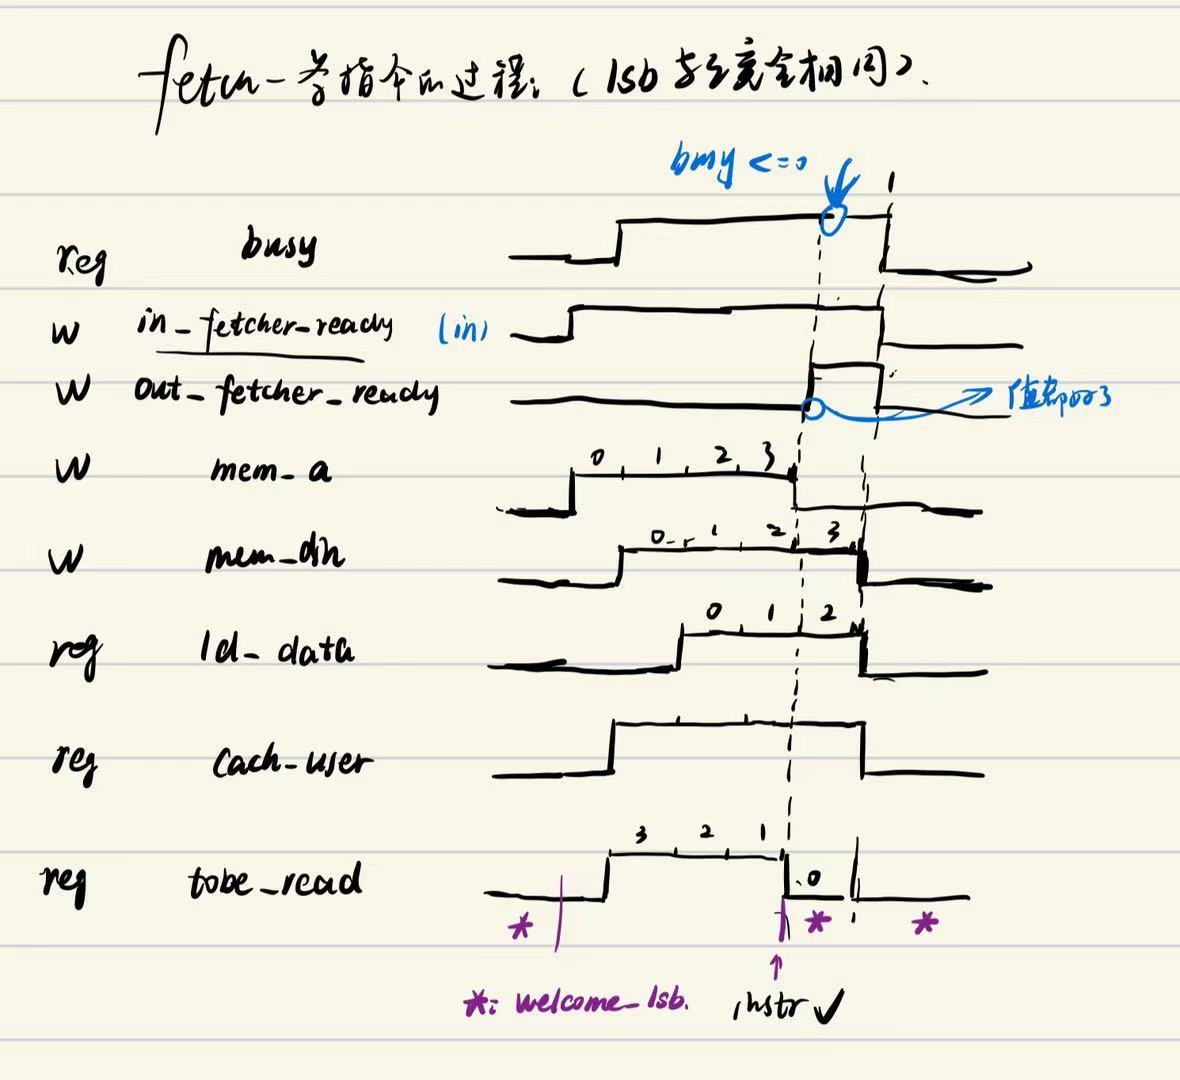 fetch一条指令的过程：（lsb与之完全相同）.
busy <= 0
reg busy
w in_fetcher_ready (in)
w out_fetcher_ready
w mem_a 0 1 2 3
w mem_din 0 1 2 3
reg ld_data 0 1 2
reg cach_user
reg tobe_read 3 2 1 0
* * *
*: welcome_lsb. instr ✓